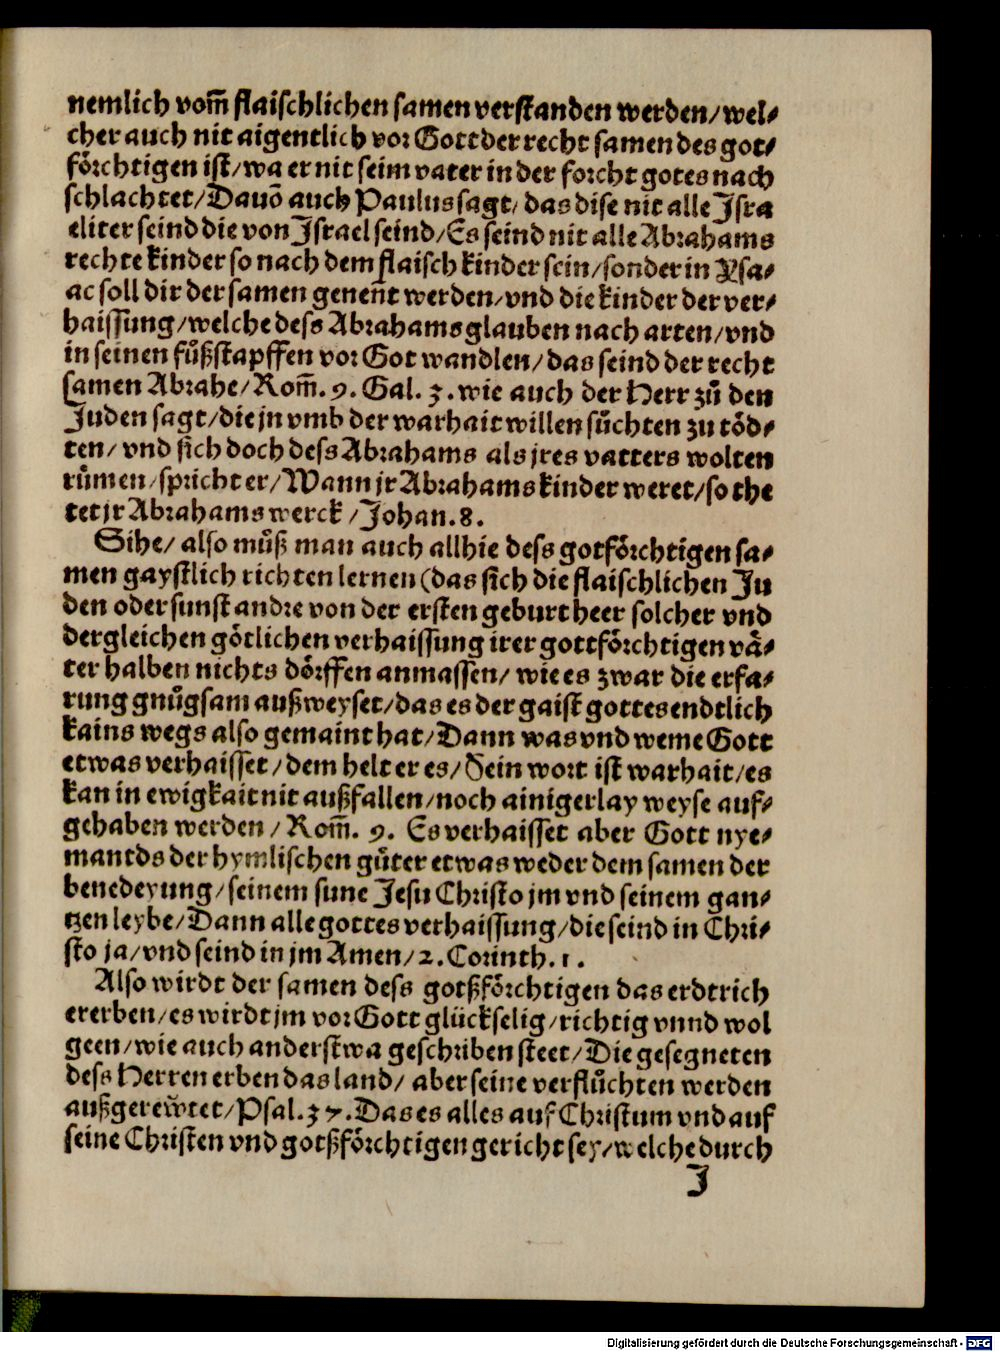 nemlich vom̃ flaischlichen samen verstanden werden/ wel⸗
cher auch nit aigentlich vor Gott der recht samen des got⸗
förchtigen ist/ wa er nit seim vater in der forcht gotes nach
schlachtet/ Dauõ auch Paulus sagt/ das dise nit alle Jsra
eliter seind die von Jsrael seind/ Es seind nit alle Abrahams
rechte kinder so nach dem flaisch kinder sein/ sonder in Ysa⸗
ac soll dir der samen genen̄t werden/ vnd die kinder der ver⸗
haissung/ welche dess Abrahams glauben nach arten/ vnd
in seinen fuͦßstapffen vor Got wandlen/ das seind der recht
samen Abrahe/ Rom̃. 9. Gal. 3. wie auch der Herr zuͦ den
Juden sagt/ die jn vmb der warhait willen suͦchten zu töd⸗
ten/ vnd sich doch dess Abrahams als jres vatters wolten
rümen/ spricht er/ Wann jr Abrahams kinder weret/ so the
tet jr Abrahams werck/ Johan. 8.
Sihe/ also muͦß man auch allhie dess gotförchtigen sa⸗
men gaystlich richten lernen (das sich die flaischlichen Ju
den oder sunst andre von der ersten geburt heer solcher vnd
dergleichen götlichen verhaissung irer gottförchtigen vä⸗
ter halben nichts dörffen anmassen/ wie es zwar die erfa⸗
rung gnuͦgsam außweyset/ das es der gaist gottes endtlich
kains wegs also gemaint hat/ Dann was vnd weme Gott
etwas verhaisset/ dem helt er es/ Sein wort ist warhait/ es
kan in ewigkait nit außfallen/ noch ainigerlay weyse auf⸗
gehaben werden/ Rom̃. 9. Es verhaisset aber Gott nye⸗
mantds der hymlischen güter etwas weder dem samen der
benedeyung/ seinem sune Jesu Christo jm vnd seinem gan⸗
tzen leybe/ Dann alle gottes verhaissung/ die seind in Chri⸗
sto ja/ vnd seind in jm Amen/ 2. Corinth. 1.
Also wirdt der samen dess gotßförchtigen das erdtrich
ererben/ es wirdt jm vor Gott glückselig/ richtig vnnd wol
geen/ wie auch anderstwa geschriben steet/ Die gesegneten
dess Herren erben das land/ aber seine verfluͦchten werden
außgereẘtet/ Psal. 37. Das es alles auf Christum vnd auf
seine Christen vnd gotßförchtigen gericht sey/ welche durch
J
Digitalisierung gefördert durch die Deutsche Forschungsgemeinschaft - DFG